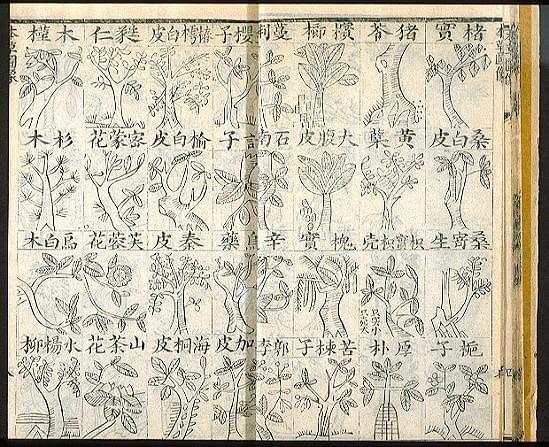 楮實 猪苓 檳榔 蔓荊 櫻子 椿樗白皮 蕤仁 木槿
桑白皮 黃蘗 大腹皮 石南 訶子 榆白皮 密蒙花 杉木
桑寄生 枳實枳壳 槐實 辛 烏藥 秦皮 芙蓉花 烏白木
梔子 厚朴 苦楝子 郁李 加皮 海桐皮 山茶花 水楊柳